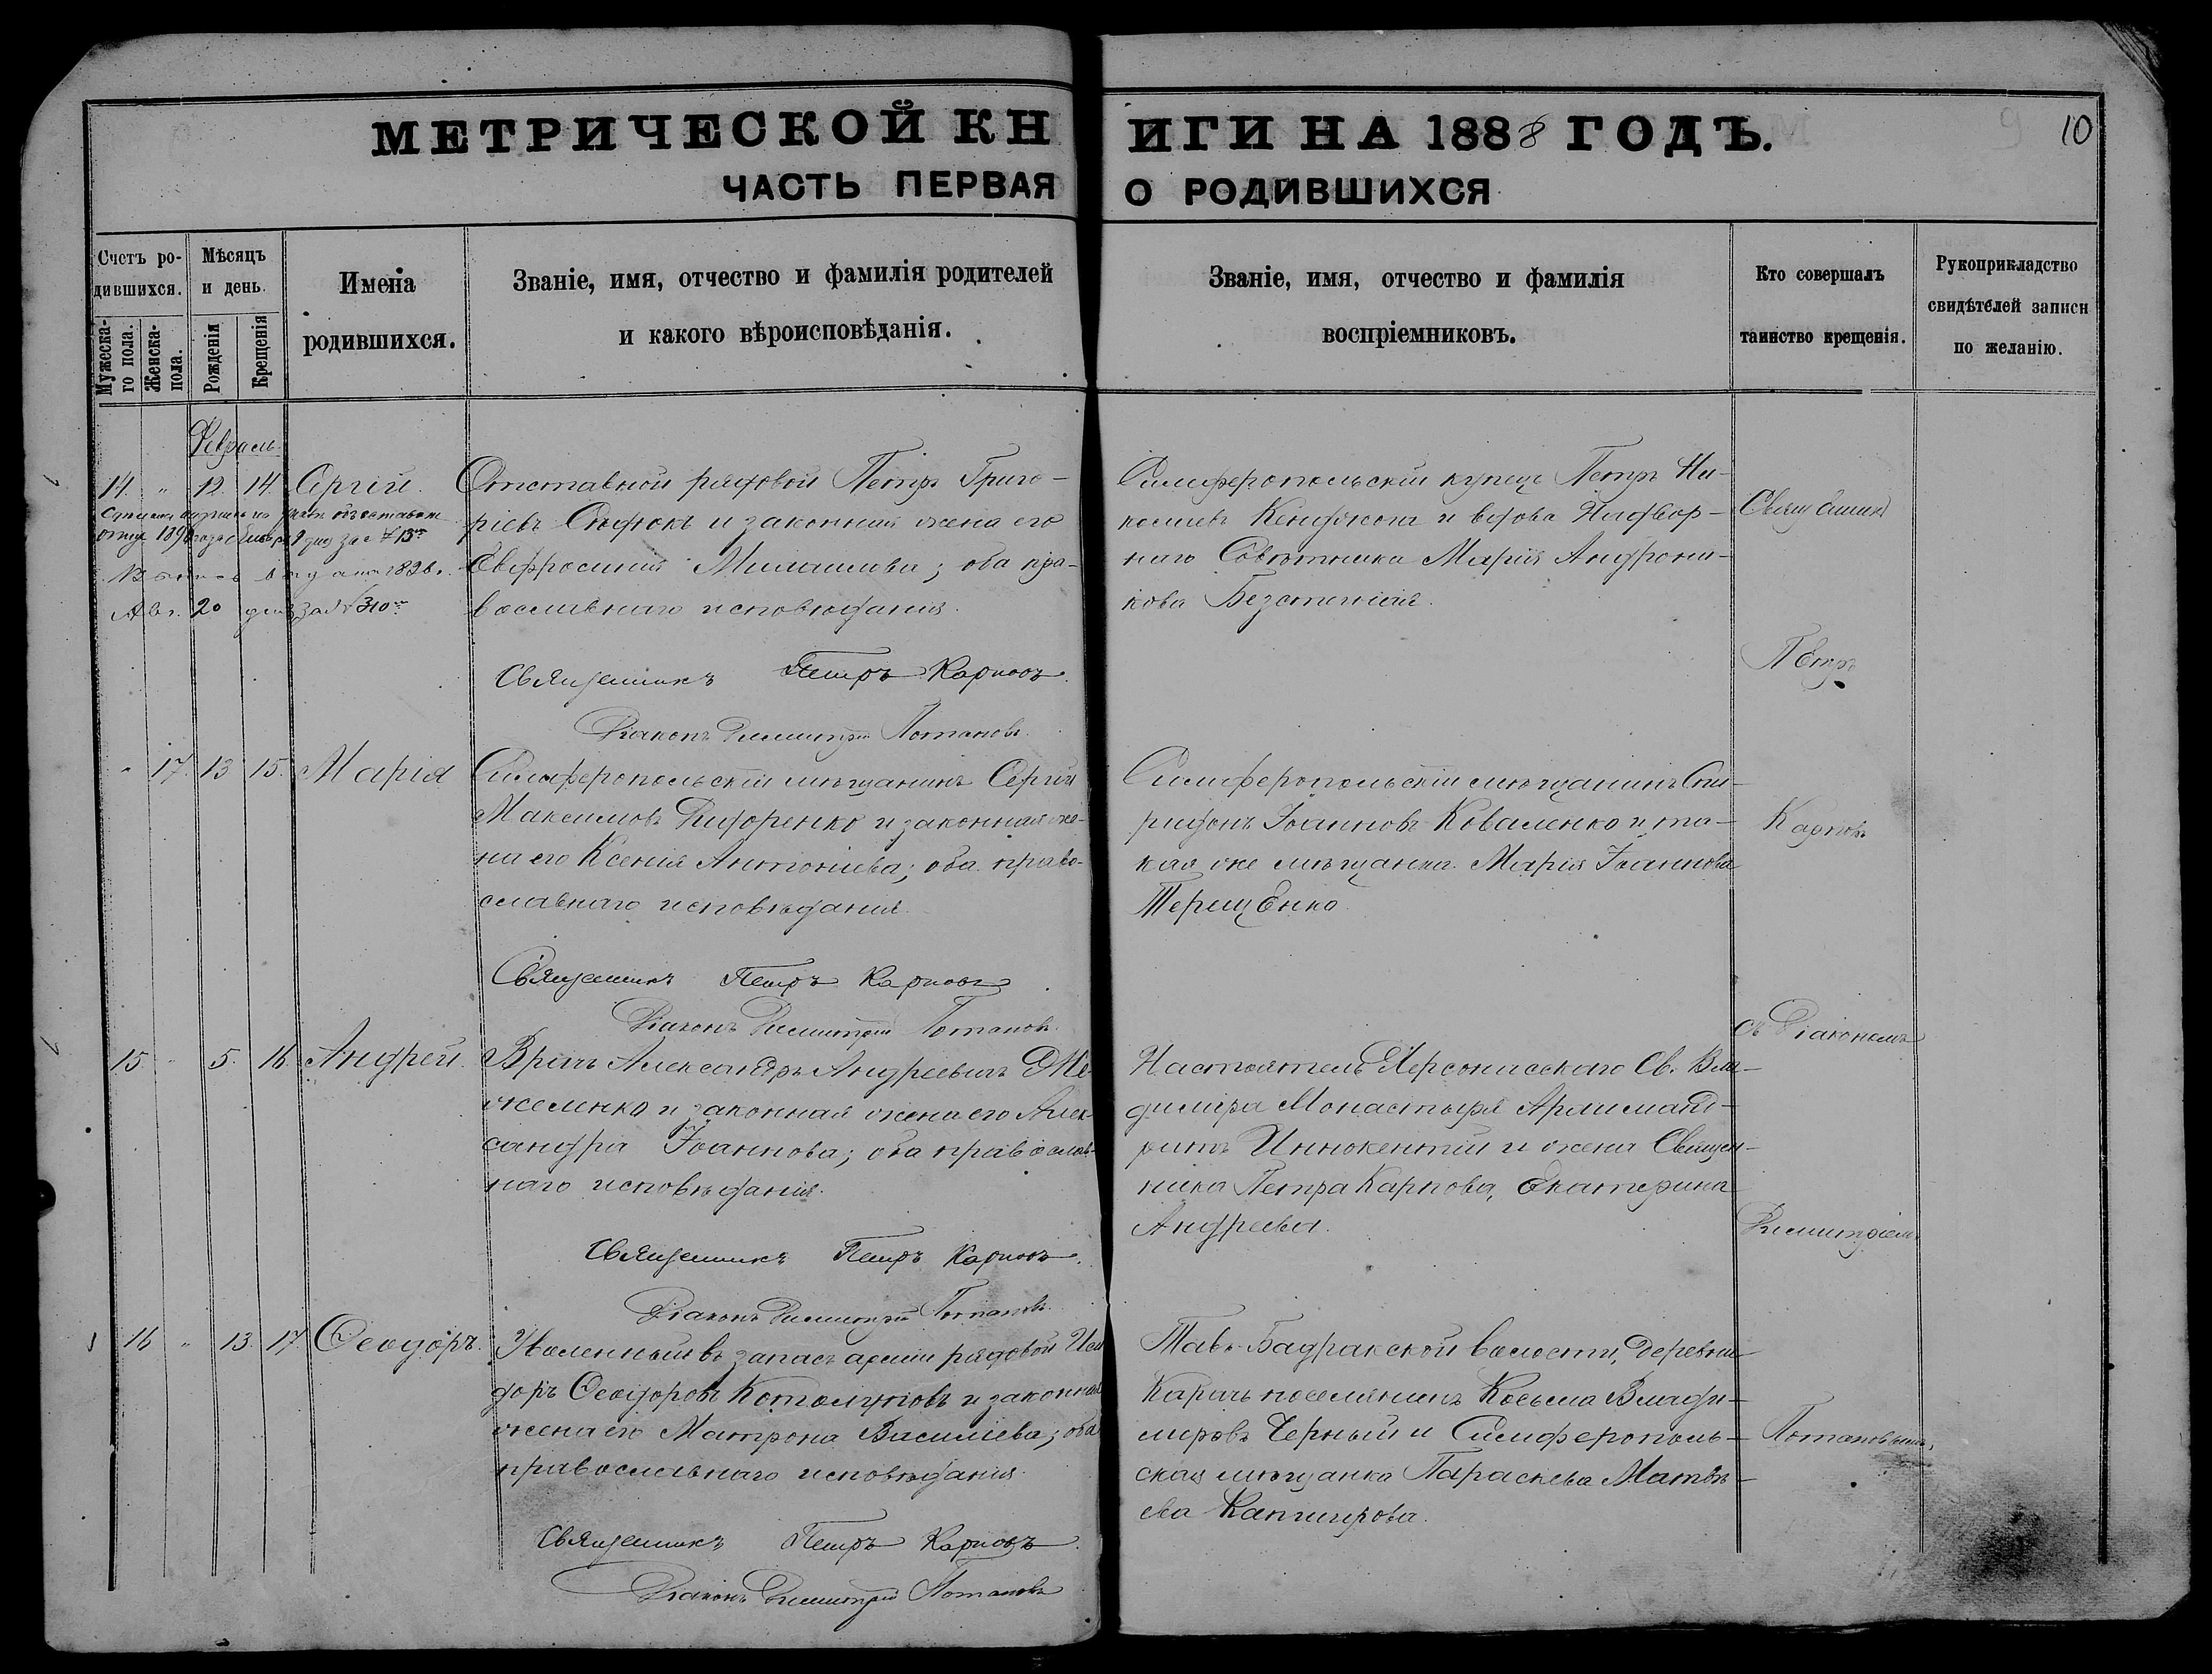 МЕТРИЧЕСКОЙ КНИГИ НА 1888 ГОДЪ.
10
ЧАСТЬ ПЕРВАЯ О РОДИВШИХСЯ
Счетъ ро-
дившихся.
Мужеска-
го пола.
Женска-
пола.
Мѣсяцъ
и день.
Рожденія
Крещенія
Имена
родившихся.
Званіе, имя, отчество и фамилія родителей
и какого вѣроисповѣданія.
Званіе, имя, отчество и фамилія
воспріемниковъ.
Кто совершалъ
таинство крещенія.
Рукоприкладство
свидѣтелей записи
по желанію.
Февраль
14. " 12 14. Сергій.
Отставной рядовой Петръ Григо-
ріевъ и законная жена его
Евфросинія; оба пра-
вославнаго исповѣданія.
Священникъ Петръ Карповъ.
Діаконъ Димитрій Потаповъ.
Симферопольскій купецъ Петръ Ни-
колаевъ и вдова Надвор-
наго Совѣтника Марія Андрони-
кова
" 17. 13 15. Марія
Симферопольскій мѣщанинъ Сергій
Максимовъ Дидоренко и законная же-
на его Ксенія Антоніева; оба право-
славнаго исповѣданія.
Священникъ Петръ Карповъ
Діаконъ Димитрій Потаповъ.
Симферопольскій мѣщанинъ Спи-
ридонъ Іоанновъ Коваленко и та-
кая же мѣщанка Марія Іоаннова
Терещенко.
15. " 5. 16. Андрей.
Врачъ Александръ Андреевичъ
и законная жена его Алек-
сандра Іоаннова; оба православ-
наго исповѣданія.
Священникъ Петръ Карповъ.
Діаконъ Димитрій Потаповъ.
Настоятель Херсонисскаго Св. Вла-
диміра Монастыря Архиманд-
ритъ Иннокентій и жена Священ-
ника Петра Карпова, Екатерина
Андреева.
16 " 13. 17. Ѳеодоръ.
Уволенный въ запасъ арміи рядовой Иси-
доръ Ѳеодоровъ и законная
жена его Матрона Василіева; оба
православнаго исповѣданія.
Священникъ Петръ Карповъ.
Діаконъ Димитрій Потаповъ
волости, деревни
поселянинъ Косьма Влади-
міровъ Черный и Симферополь-
ская мѣщанка Параскева Матвѣ-
ева
Священникъ
Петръ
Карповъ
съ Діакономъ
Димитріемъ
Потаповымъ.